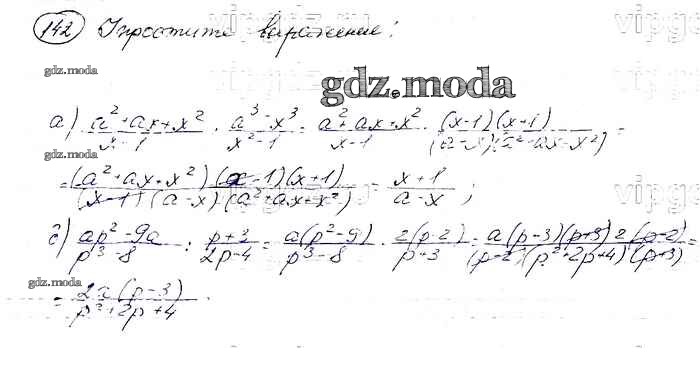 142 Упростите выражение:
gdz.moda
gdz.moda
а) (a² + ax + x²)/(x - 1) : (a³ - x³)/(x² - 1) = (a² + ax + x²)/(x - 1) · ((x-1)(x+1))/((a-x)(a²+ax+x²)) =
gdz.moda
= ((a² + ax + x²)(x-1)(x+1))/((x-1)(a-x)(a²+ax+x²)) = (x+1)/(a-x);
б) (ap² - 9a)/(p³ - 8) : (p+3)/(2p-4) = (a(p²-9))/(p³-8) · (2(p-2))/(p+3) = (a(p-3)(p+3)2(p-2))/((p-2)(p²+2p+4)(p+3)) =
gdz.moda
= (2a(p-3))/(p²+2p+4)